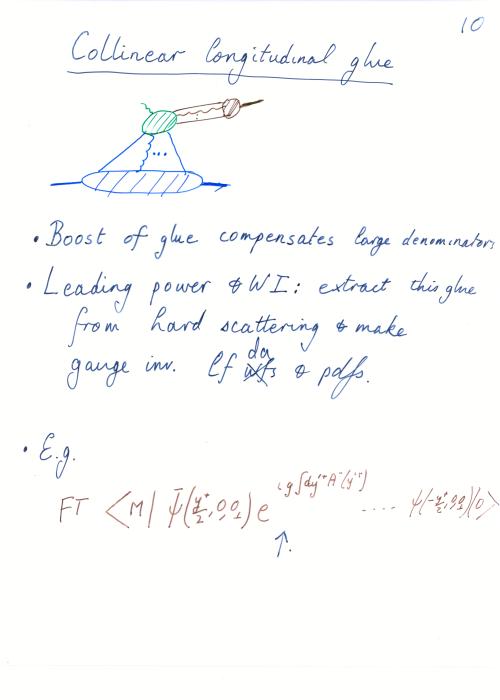 10
Collinear longitudinal glue
• Boost of glue compensates large denominators
• Leading power & WI: extract this glue
from hard scattering & make
gauge inv. lf da & pdfs.
• E.g.
FT <M| ψ̄(y⁺/2, 0, 0⊥) e^{ig∫dy'⁺A⁻(y'⁺)} .... ψ(-y⁺/2, 0, 0⊥)|0>
↑.